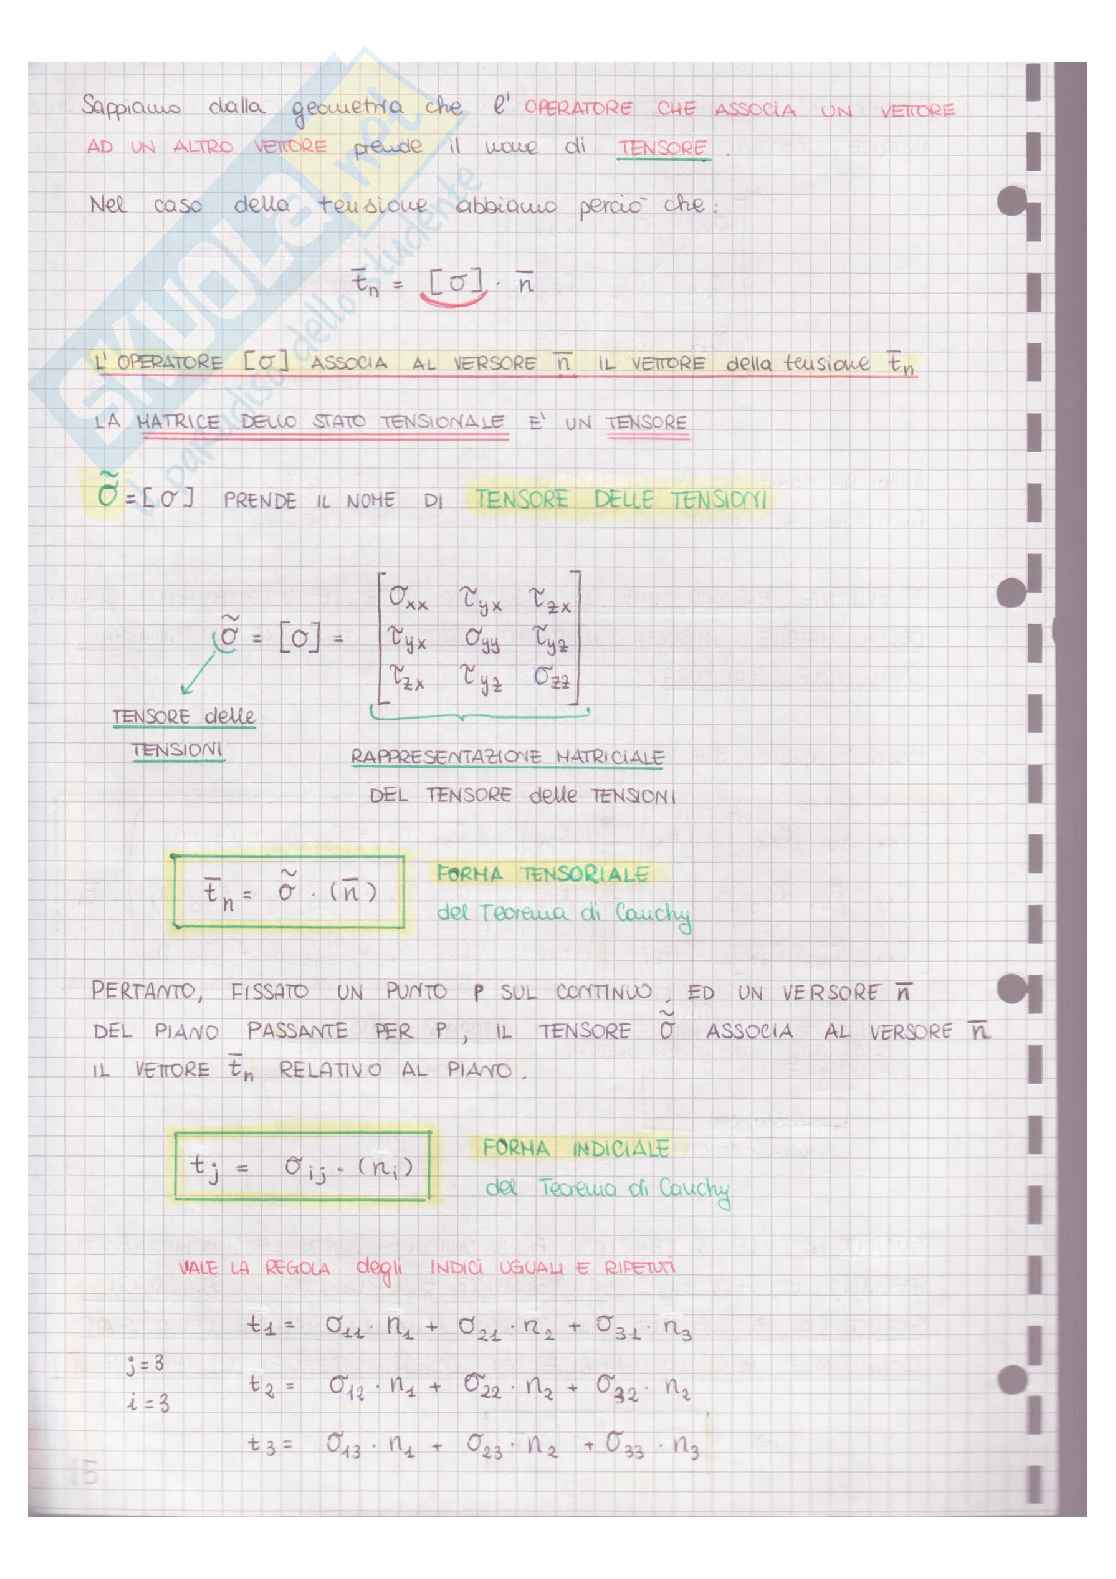 Sappiamo dalla geometria che l' OPERATORE CHE ASSOCIA UN VETTORE
AD UN ALTRO VETTORE prende il nome di TENSORE.
Nel caso della tensione abbiamo perciò che:
t̅n = [σ] · n̅
L' OPERATORE [σ] ASSOCIA AL VERSORE n̅ IL VETTORE della tensione t̅n
LA MATRICE DELLO STATO TENSIONALE E' UN TENSORE
σ̃ = [σ] PRENDE IL NOME DI TENSORE DELLE TENSIONI
σxx τyx τzx
σ̃ = [σ] = τyx σyy τyz
τzx τyz σzz
TENSORE delle
TENSIONI
RAPPRESENTAZIONE MATRICIALE
DEL TENSORE delle TENSIONI
t̅n = σ̃ · (n̅)
FORMA TENSORIALE
del Teorema di Cauchy
PERTANTO, FISSATO UN PUNTO P SUL CONTINUO, ED UN VERSORE n̅
DEL PIANO PASSANTE PER P, IL TENSORE σ̃ ASSOCIA AL VERSORE n̅
IL VETTORE t̅n RELATIVO AL PIANO.
tj = σij · (ni)
FORMA INDICIALE
del Teorema di Cauchy
VALE LA REGOLA degli INDICI UGUALI E RIPETUTI
t1 = σ11 · n1 + σ21 · n2 + σ31 · n3
j = 3
t2 = σ12 · n1 + σ22 · n2 + σ32 · n2
i = 3
t3 = σ13 · n1 + σ23 · n2 + σ33 · n3
15
SKUOLA.net
il paradiso dello studente